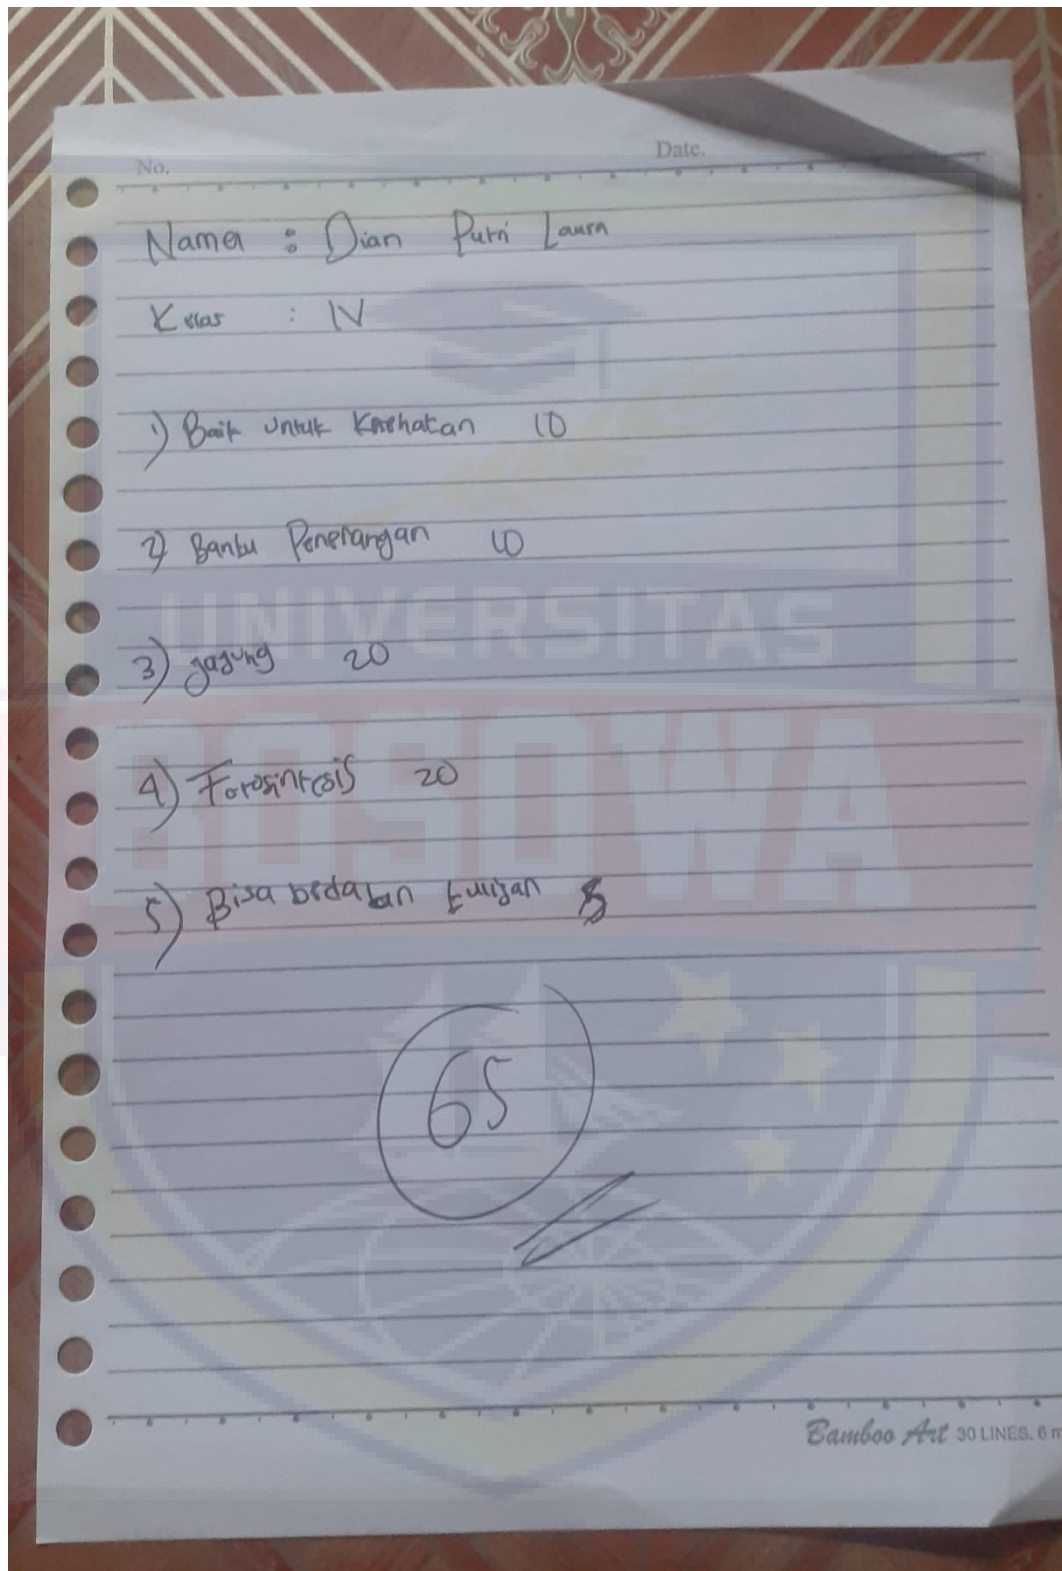 No. Date.
Nama : Dian Putri Laura
Kelas : IV
1) Baik untuk Kesehatan 10
2) Bantu Penerangan 10
3) jagung 20
4) Fotosintesis 20
5) Bisa bedakan 5
65
UNIVERSITAS
BOSOWA
Bamboo Art 30 LINES. 6 m